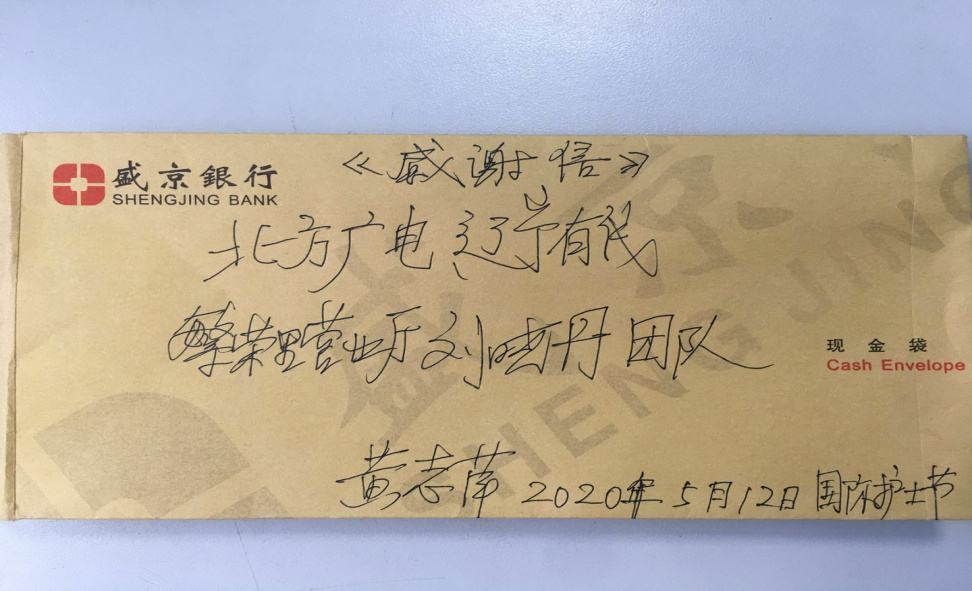 盛京銀行
SHENGJING BANK
《感谢信》
北方广电辽宁有线
繁荣里营业厅刘晓丹团队
现金袋
Cash Envelope
黄志萍 2020年5月12日国际护士节
盛京
SHENGJING